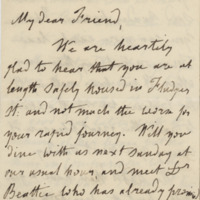 My dear Friend,
We are heartily
glad to hear that you are at
length safely housed in Fludyer
St. and not much the worse for
your rapid journey. Will you
dine with us next Sunday at
our usual hour, and meet Dr
Beattie who has already promised